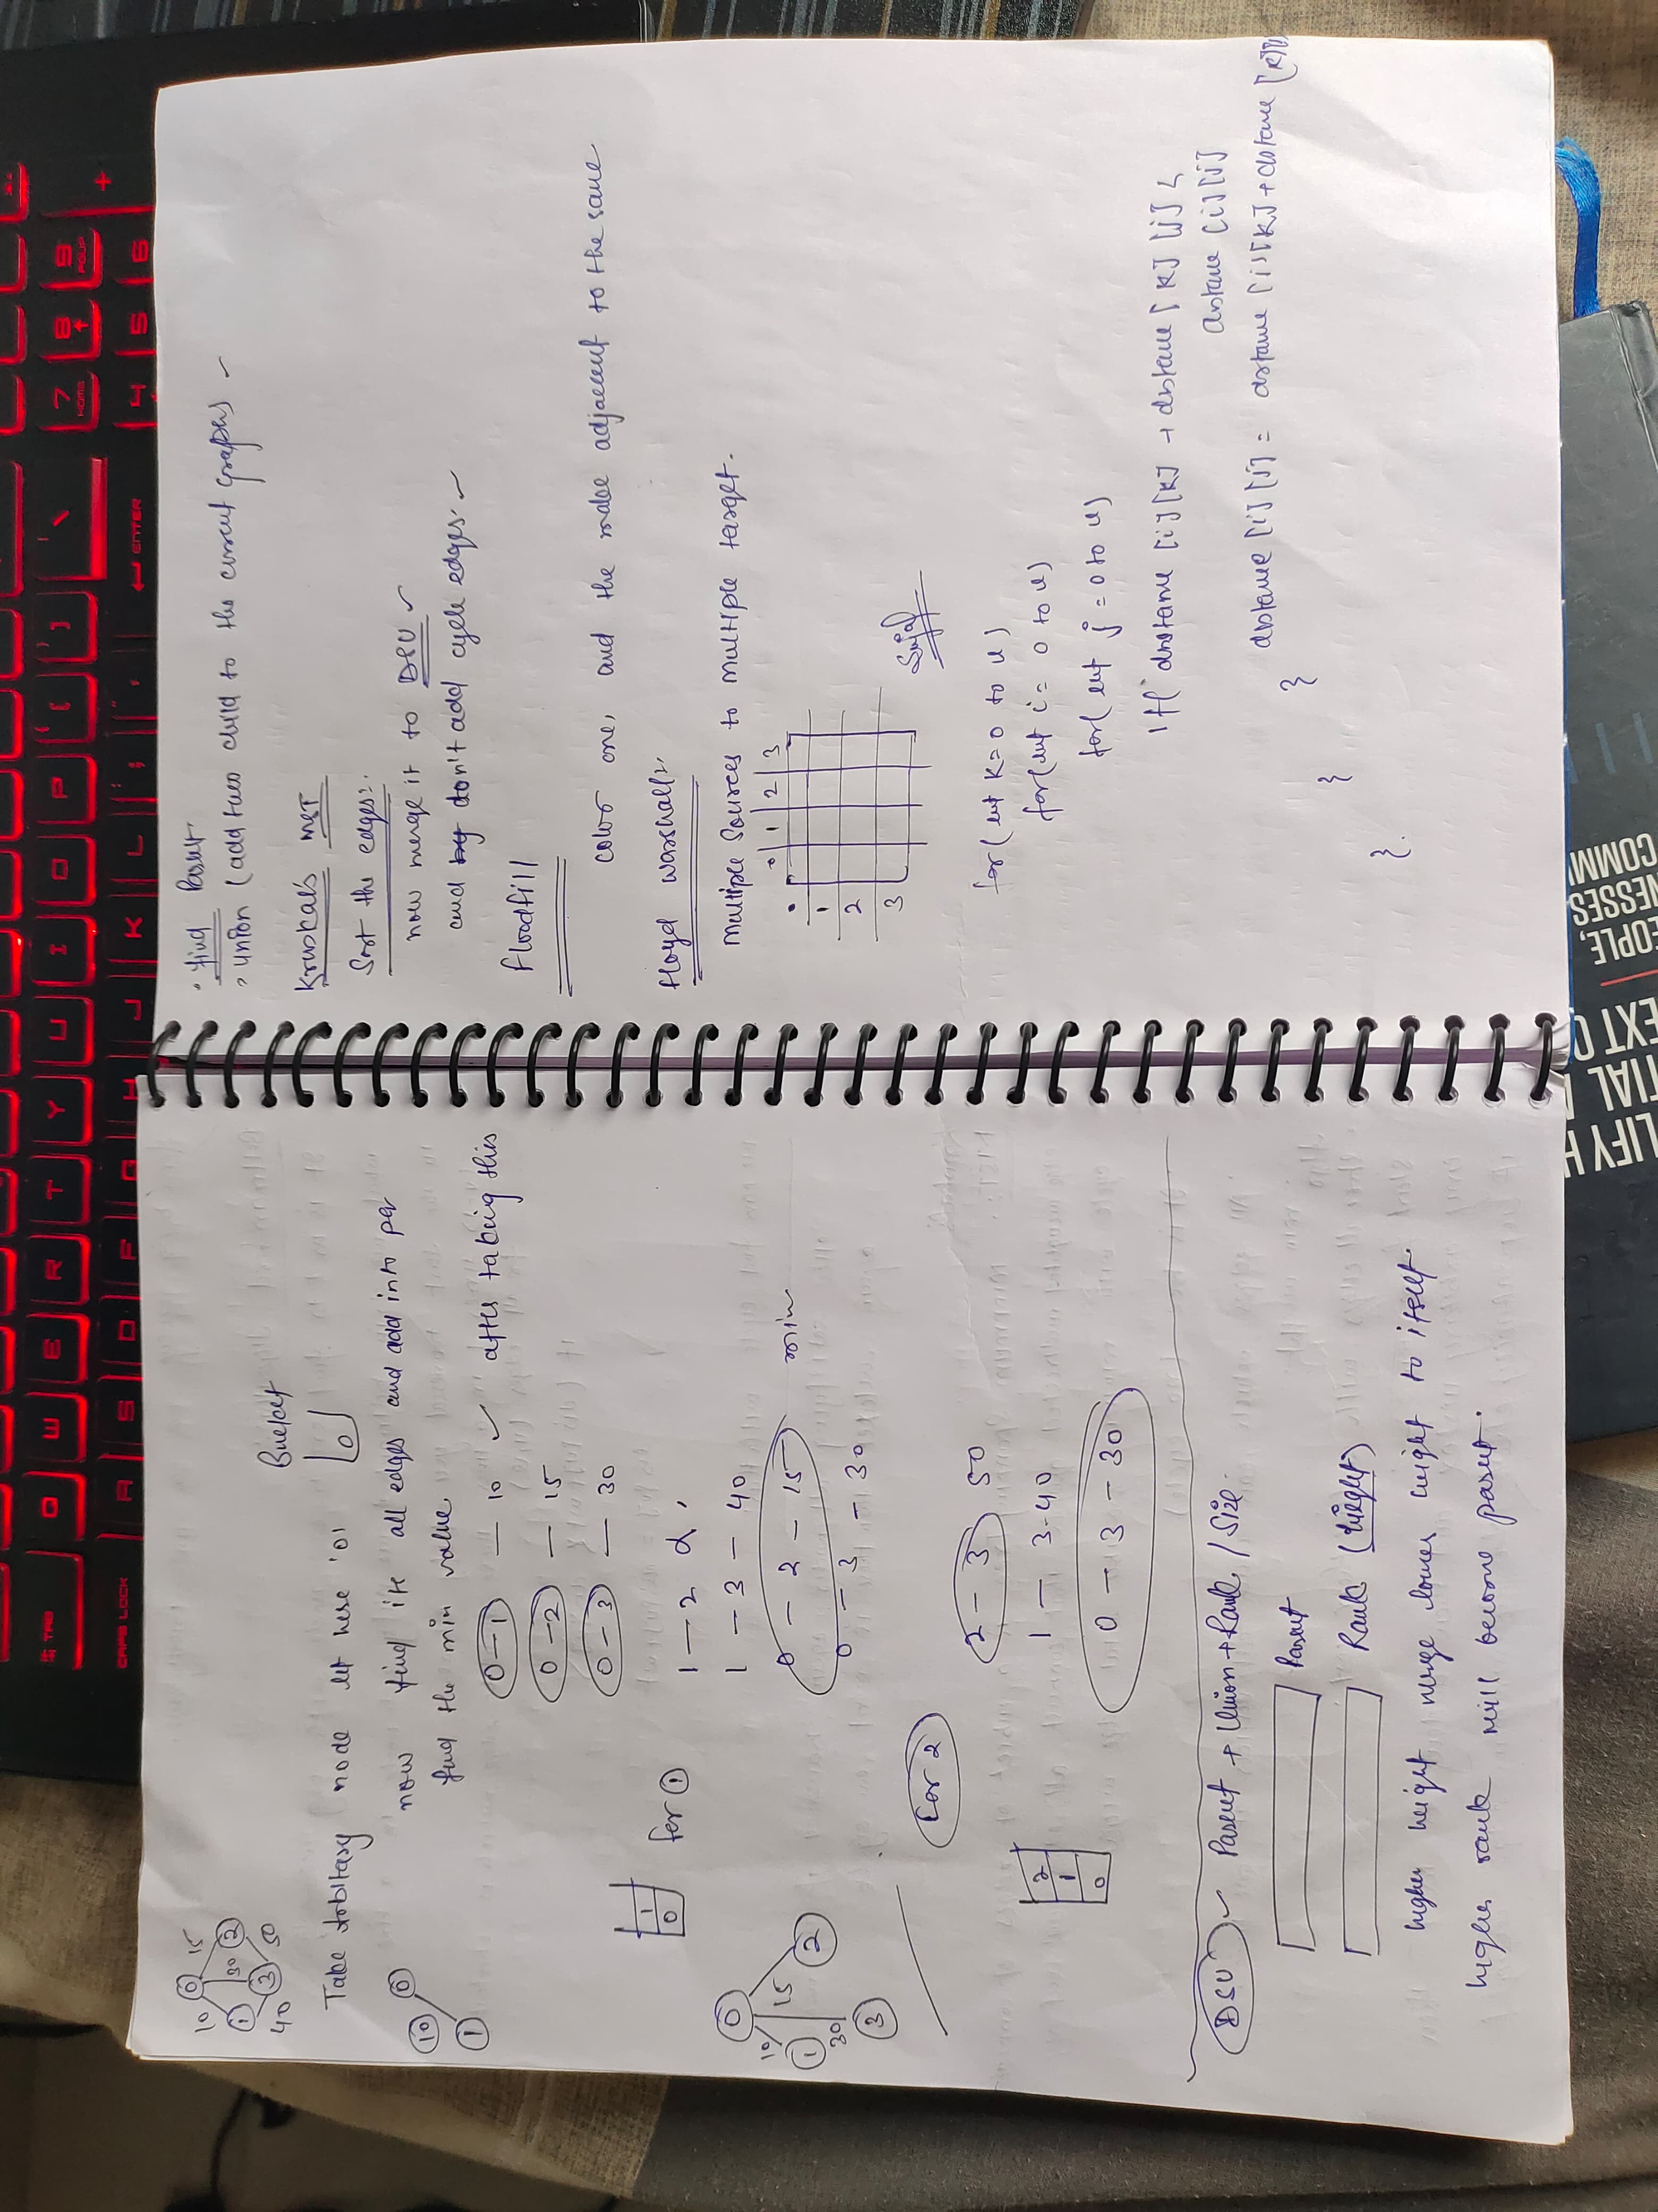 TAB Q W E R T Y U I O P { [ } ] \ 7 HOME 8 9 PGUP +
CAPS LOCK A S D F G H J K L : ; " ' ENTER 4 5 6
0
10 15
1 30 2
3
40 50
Bucket
0
Take Arbitrary node let here '0'
0
10
1
now find its all edges and add into per
find the min value
0-1 — 10 ✓ after taking this
0-2 — 15
0-3 — 30
1
0
for 1
1-2
1 - 3 - 40
0 - 2 - 15 min
0 - 3 - 30
0
10 15
1 2
30
3
for 2
2 - 3 50
1 - 3-40
0 - 3 - 30
2
1
0
DSU ✓ Parent + Union + Rank / Size.
Parent
Rank (hieght)
higher height merge lower height to itself.
higher rank will become parent.
• find Parent.
• Union (add two child to the current graphs) ✓
Kruskal's MST
Sort the edges:.
now merge it to DSU ✓
and by don't add cycle edges. ✓
Floodfill
color one, and the make adjacent to the same
Floyd Warshall:.
Multiple Sources to multiple target.
0 1 2 3
1
2
3
Sujal
for( int k=0 to u)
for(int i= 0 to u)
for( int j = 0 to u)
if( distance [i][k] + distance [k] [j] <
distance [i][j]
distance [i][j] = distance [i][k] + distance [k][j]
}
}
}.
LIFY H
TIAL
EXT
PEOPLE,
NESSES
COMM